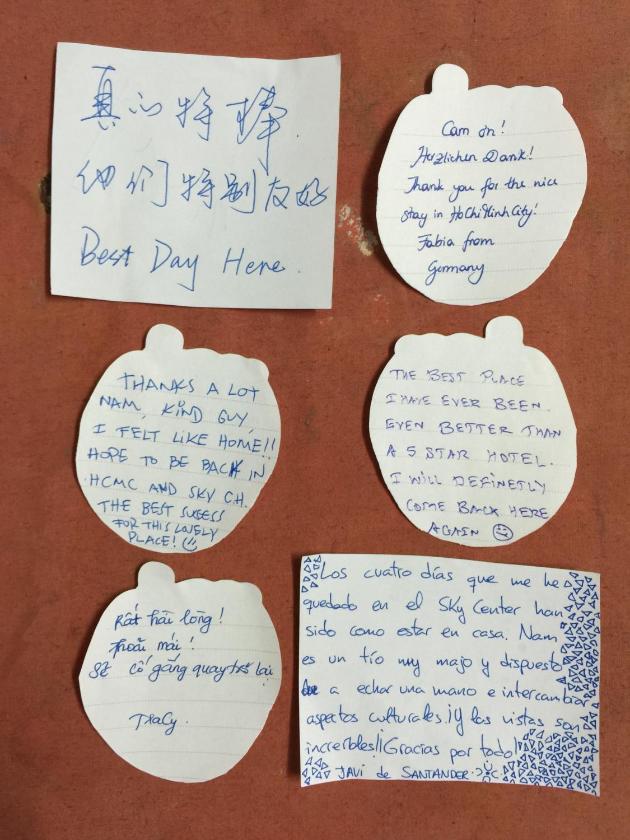 真心特棒.
他们特别友好
Best Day Here.
Cam ơn!
Herzlichen Dank!
Thank you for the nice
stay in HoChiMinhCity!
Fabia from
Germany
THANKS A LOT
NAM, KIND GUY,
I FELT LIKE HOME!!
HOPE TO BE BACK IN
HCMC AND SKY CH.
THE BEST SUCESS
FOR THIS LOVELY
PLACE!
THE BEST PLACE
I HAVE EVER BEEN.
EVEN BETTER THAN
A 5 STAR HOTEL.
I WILL DEFINETLY
COME BACK HERE
AGAIN
Rất hài lòng!
Thoải mái!
Sẽ cố gắng quay trở lại
TraCy.
Los cuatro días que me he
quedado en el Sky Center han
sido como estar en casa. Nam
es un tío muy majo y dispuesto
a echar una mano e intercambiar
aspectos culturales. ¡Y las vistas son
increíbles! ¡Gracias por todo!
JAVI de SANTANDER